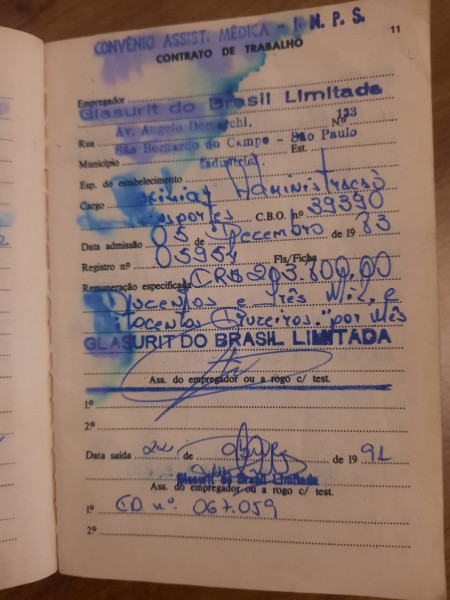 CONVÊNIO ASSIST. MÉDICA - I. N. P. S.
11
CONTRATO DE TRABALHO
Empregador Glasurit do Brasil Limitada
Rua Av. Angelo Demarchi, Nº 123
Município São Bernardo do Campo - Est. São Paulo
Esp. do estabelecimento Industrial
Cargo Auxiliar Administração
C.B.O. nº 39390
Data admissão 05 de Dezembro de 19 83
Registro nº 03954 Fls/Ficha
Remuneração especificada CR$ 203.800,00
Duzentos e três Mil, e
oitocentos Cruzeiros." por mês
GLASURIT DO BRASIL LIMITADA
Ass. do empregador ou a rogo c/ test.
1º
2º
Data saída de de 19 91
Glasurit do Brasil Limitada
Ass. do empregador ou a rogo c/ test.
1º CD nº. 067.059
2º